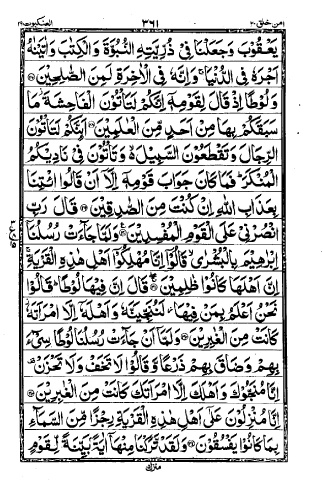 امن خلق ٢٠ ٣٦١ العنكبوت ٢٩
يَعْقُوْبَ وَجَعَلْنَا فِيْ ذُرِّيَّتِهِ النُّبُوَّةَ وَالْكِتٰبَ وَاٰتَيْنٰهُ
اَجْرَهٗ فِي الدُّنْيَا ۚ وَاِنَّهٗ فِي الْاٰخِرَةِ لَمِنَ الصّٰلِحِيْنَ ۝
وَلُوْطًا اِذْ قَالَ لِقَوْمِهٖۤ اِنَّكُمْ لَتَاْتُوْنَ الْفَاحِشَةَ ۡ مَا
سَبَقَكُمْ بِهَا مِنْ اَحَدٍ مِّنَ الْعٰلَمِيْنَ ۝ اَئِنَّكُمْ لَتَاْتُوْنَ
الرِّجَالَ وَتَقْطَعُوْنَ السَّبِيْلَ ۙ وَتَاْتُوْنَ فِيْ نَادِيْكُمُ
الْمُنْكَرَ ؕ فَمَا كَانَ جَوَابَ قَوْمِهٖۤ اِلَّاۤ اَنْ قَالُوا ائْتِنَا
بِعَذَابِ اللّٰهِ اِنْ كُنْتَ مِنَ الصّٰدِقِيْنَ ۝ قَالَ رَبِّ
انْصُرْنِيْ عَلَى الْقَوْمِ الْمُفْسِدِيْنَ ۝ وَلَمَّا جَآءَتْ رُسُلُنَاۤ
اِبْرٰهِيْمَ بِالْبُشْرٰى ۙ قَالُوْۤا اِنَّا مُهْلِكُوْۤا اَهْلِ هٰذِهِ الْقَرْيَةِ ۚ
اِنَّ اَهْلَهَا كَانُوْا ظٰلِمِيْنَ ۝ قَالَ اِنَّ فِيْهَا لُوْطًا ؕ قَالُوْا
نَحْنُ اَعْلَمُ بِمَنْ فِيْهَا ۫ لَنُنَجِّيَنَّهٗ وَاَهْلَهٗۤ اِلَّا امْرَاَتَهٗ
كَانَتْ مِنَ الْغٰبِرِيْنَ ۝ وَلَمَّاۤ اَنْ جَآءَتْ رُسُلُنَا لُوْطًا سِيْٓءَ
بِهِمْ وَضَاقَ بِهِمْ ذَرْعًا وَّقَالُوْا لَا تَخَفْ وَلَا تَحْزَنْ
اِنَّا مُنَجُّوْكَ وَاَهْلَكَ اِلَّا امْرَاَتَكَ كَانَتْ مِنَ الْغٰبِرِيْنَ ۝
اِنَّا مُنْزِلُوْنَ عَلٰۤى اَهْلِ هٰذِهِ الْقَرْيَةِ رِجْزًا مِّنَ السَّمَآءِ
بِمَا كَانُوْا يَفْسُقُوْنَ ۝ وَلَقَدْ تَّرَكْنَا مِنْهَاۤ اٰيَةًۢ بَيِّنَةً لِّقَوْمٍ
منزل